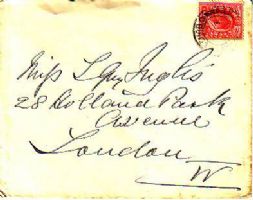 Miss L Amy Inglis
28 Holland Park
Avenue
London
W